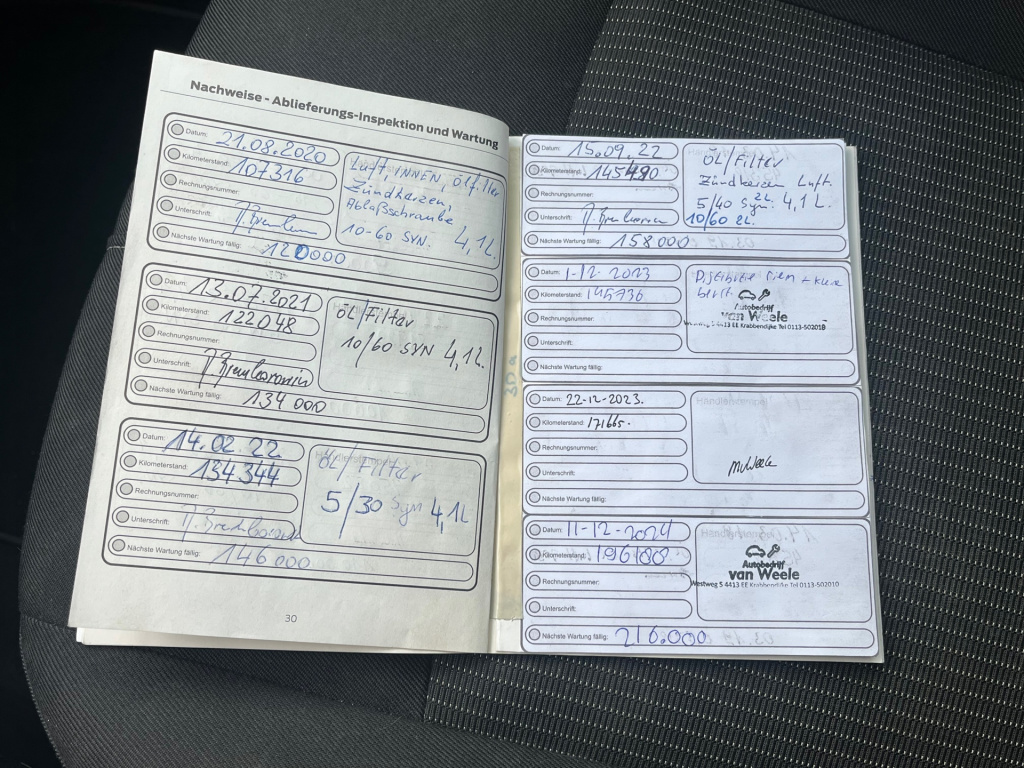 Nachweise - Ablieferungs-Inspektion und Wartung
Datum: 21.08.2020
Kilometerstand: 107316
Rechnungsnummer:
Unterschrift:
Nächste Wartung fällig: 120000
Luft, INNEN, ölfilter
Zündkerzen,
Ablaßschraube
10-60 SYN. 4,1L.
Datum: 13.07.2021
Kilometerstand: 122048
Rechnungsnummer:
Unterschrift:
Nächste Wartung fällig: 134 000
öL/Filter
10/60 SYN 4,1L.
Datum: 14.02.22
Kilometerstand: 134344
Rechnungsnummer:
Unterschrift:
Nächste Wartung fällig: 146 000
öL/Filter
5/30 Syn 4,1L
30
Datum: 15.09.22
Kilometerstand: 145490
Rechnungsnummer:
Unterschrift:
Nächste Wartung fällig: 158 000
öL/Filter
Zündkerzen Luft.
5/40 Syn. 2L 4,1L.
10/60 2L.
Datum: 1-12-2023
Kilometerstand: 145736
Rechnungsnummer:
Unterschrift:
Nächste Wartung fällig:
Distributie riem +
Autobedrijf
van Weele
Westweg 5 4413 EE Krabbendijke Tel 0113-502010
Datum: 22-12-2023.
Kilometerstand: 171665.
Rechnungsnummer:
Unterschrift:
Nächste Wartung fällig:
Datum: 11-12-2024
Kilometerstand:
Rechnungsnummer:
Unterschrift:
Nächste Wartung fällig: 216.000
Autobedrijf
van Weele
Westweg 5 4413 EE Krabbendijke Tel 0113-502010